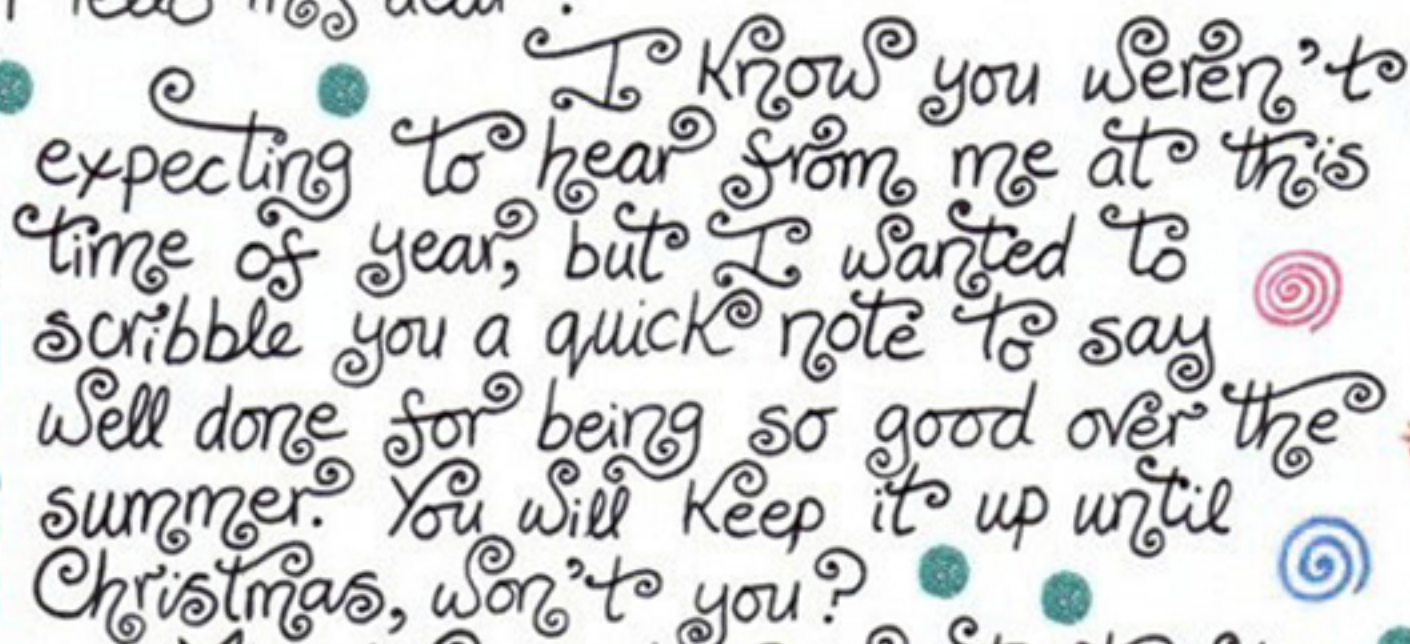 I know you weren't
expecting to hear from me at this
time of year, but I wanted to
scribble you a quick note to say
well done for being so good over the
summer. You will keep it up until
Christmas, won't you?